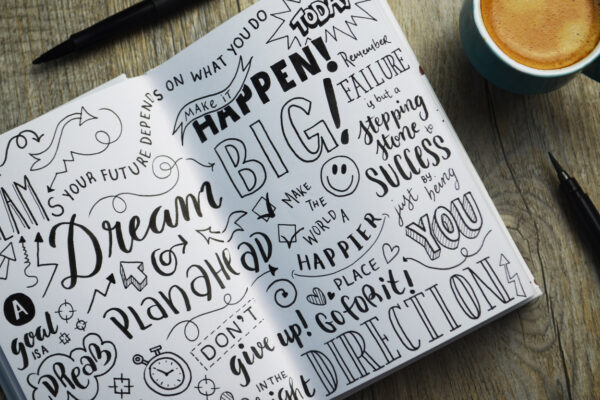 YOUR FUTURE DEPENDS ON WHAT YOU DO
TODAY
MAKE IT
HAPPEN!
Dream
BIG!
Remember
FAILURE
is but a
stepping
stone
SUCCESS
just by
being
YOU
MAKE
THE
WORLD A
HAPPIER
PLACE
PLAN AHEAD
A
goal
IS A
DREAM
DON'T
give up!
Go for it!
IN THE
right
DIRECTION